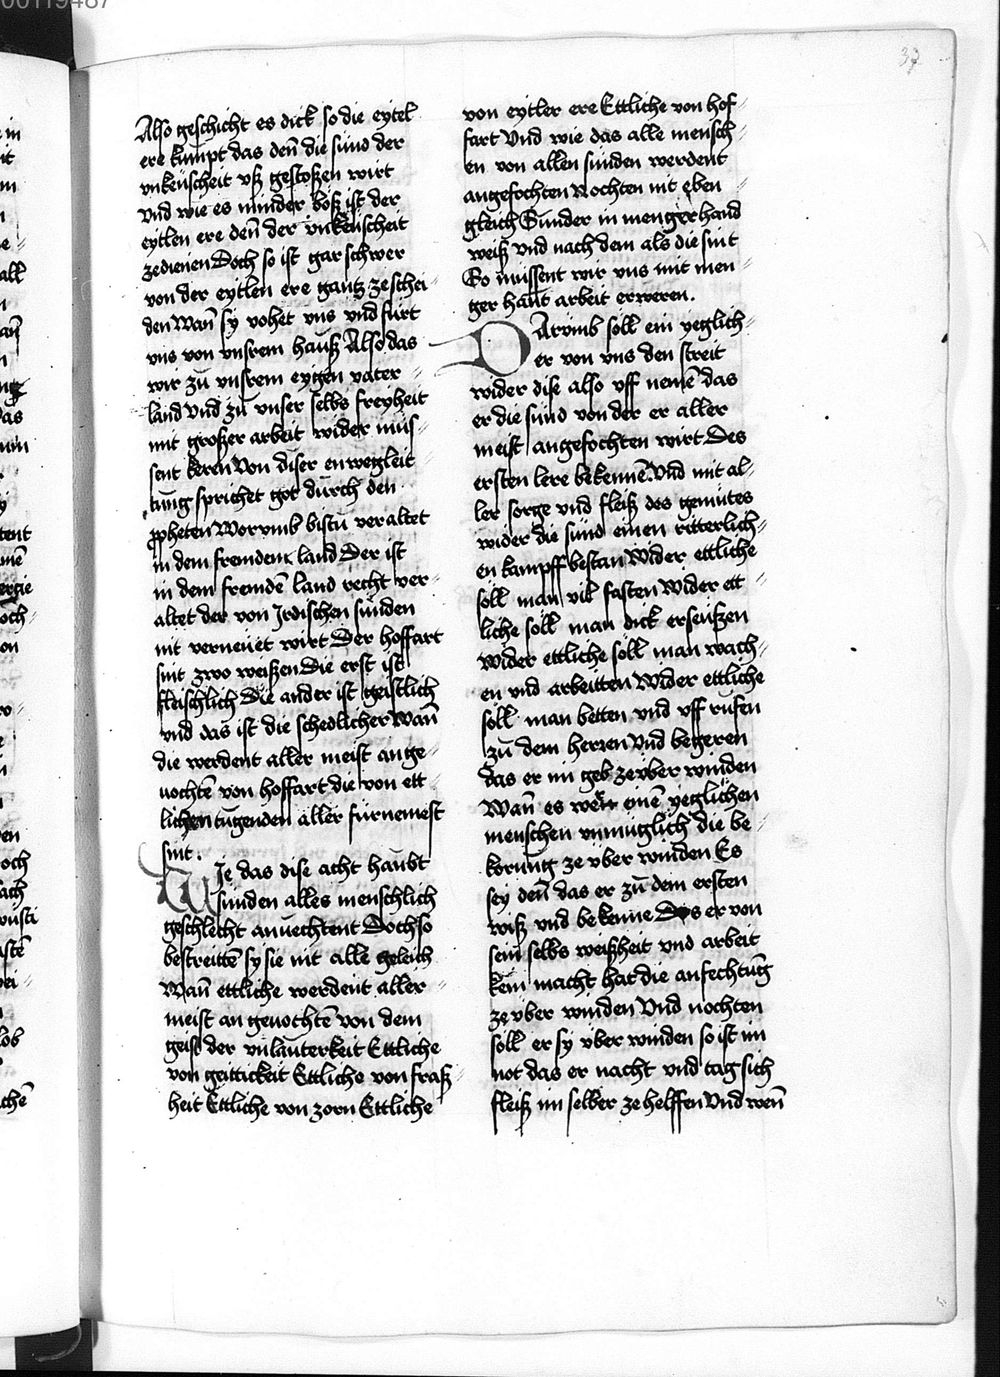 37
Also geschicht es dick so die eytel
ere kumpt das den̄ die sund der
vnkeuscheit vß gestoßen wirt
Vnd wie es minder boß ist der
eytlen ere den̄ der vnkeuscheit
zedienen Doch so ist gar schwer
von der eytlen ere gantz ze schei-
den Wan̄ sy vohet vns vnd fürt
vns von vnsrem hauß Also das
wir zu vnsrem eygen vater-
land Vnd zu vnser selbs freyheit
mit großer arbeit wider müs-
sent keren Von diser enwegleit-
tung sprichet got durch den
ppheten Worvmb bistu veraltet
in dem fremdem land Der ist
in dem fremdē land recht ver-
altet der von Irdischen sünden
nit verneuet wirt Der hoffart
sint zwo weißen Die erst ist
fleischlich Die ander ist geistlich
vnd das ist die schedlicher Wan̄
die werdent aller meist ange-
uochtē von hoffart die von ett-
lichen tugenden aller fürnemest
sint.
WIe das dise acht haubt
sünden alles menschlich
geschlecht anuechtent Doch so
bestreittē sy sie nit alle geleich
Wan̄ ettliche werdent aller-
meist an geuochtē von dem
geist der vnlauterkeit Ettliche
von geittickeit Ettliche von fraß-
heit Ettliche von zorn Ettliche
von eytler ere Ettliche von hof-
fart Vnd wie das alle mensch-
en von allen sünden werdent
angefochten Nochten nit eben-
gleich Sunder in menger hand
weiß vnd nach dem als die sint
So müssent wir vns mit men-
ger hant arbeit erweren.
DArvmb soll ein yeglich-
er von vns den streit
wider dise also vff nemē das
er die sund von der er aller
meist angefochten wirt Des
ersten lere bekennē. Vnd mit al-
ler sorge vnd fleiß des gemütes
wider die sund einen ritterlich-
en kampff bestan Wider ettliche
soll man vil fasten Wider ett-
liche soll man dick erseufzen
Wider ettliche soll man wach-
en vnd arbeitten Wider ettliche
soll man betten vnd vff rufen
zu dem herren Vnd begeren
das er im geb ze vber winden
Wan̄ es wer einē yeglichen
menschen vnmüglich die be-
korung ze vber winden Es
sey den̄ das er zu dem ersten
wiß vnd bekenne Das er von
sein selbs weißheit vnd arbeit
kein macht hat die anfechtūg
ze vber winden Vnd nochten
soll er sy vber winden so ist im
not das er nacht vnd tag sich
fleiß im selber ze helffen Vnd wen̄